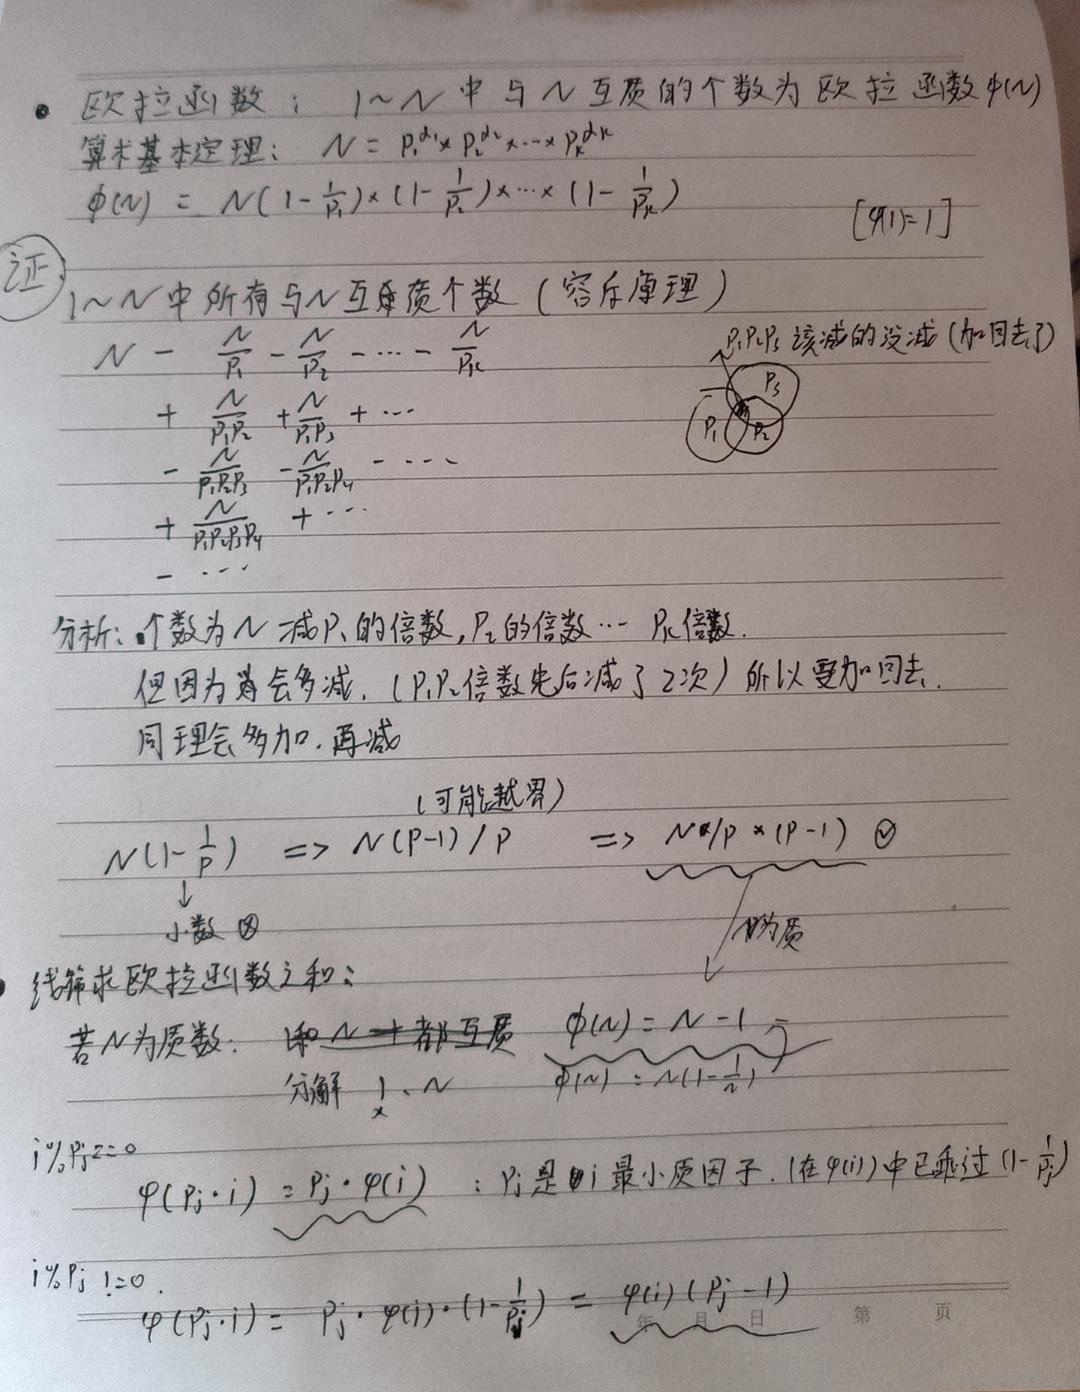 欧拉函数: 1~N中与N互质的个数为欧拉函数φ(N)
算术基本定理: N = P₁^α₁ × P₂^α₂ × ⋯ × Pₖ^αₖ
φ(N) = N(1 - 1/P₁) × (1 - 1/P₂) × ⋯ × (1 - 1/Pₖ)
[φ(1)=1]
证
1~N中所有与N互质个数 (容斥原理)
N - N/P₁ - N/P₂ - ⋯ - N/Pₖ
P₁P₂P₃ 该减的没减 (加回去了)
P₃
P₁ P₂
+ N/P₁P₂ + N/P₁P₃ + ⋯
- N/P₁P₂P₃ - N/P₁P₂P₄ - ⋯
+ N/P₁P₂P₃P₄ + ⋯
- ⋯
分析: 个数为N 减P₁的倍数, P₂的倍数 ⋯ Pₖ倍数.
但因为 会多减. (P₁P₂倍数先后减了2次) 所以要加回去.
同理会多加. 再减
(可能越界)
N(1 - 1/P) => N(P-1)/P => N/P × (P-1)
小数
N为质
线筛求欧拉函数之和:
若N为质数: 和 N-1 都互质 φ(N) = N-1
分解 1 × N φ(N) = N(1 - 1/N)
i%Pj==0
φ(Pj·i) = Pj·φ(i) : Pj是i最小质因子. (在φ(i))中已乘过(1 - 1/Pj)
i%Pj !=0.
φ(Pj·i) = Pj·φ(i)·(1 - 1/Pj) = φ(i)(Pj-1)
年 月 日 第 页